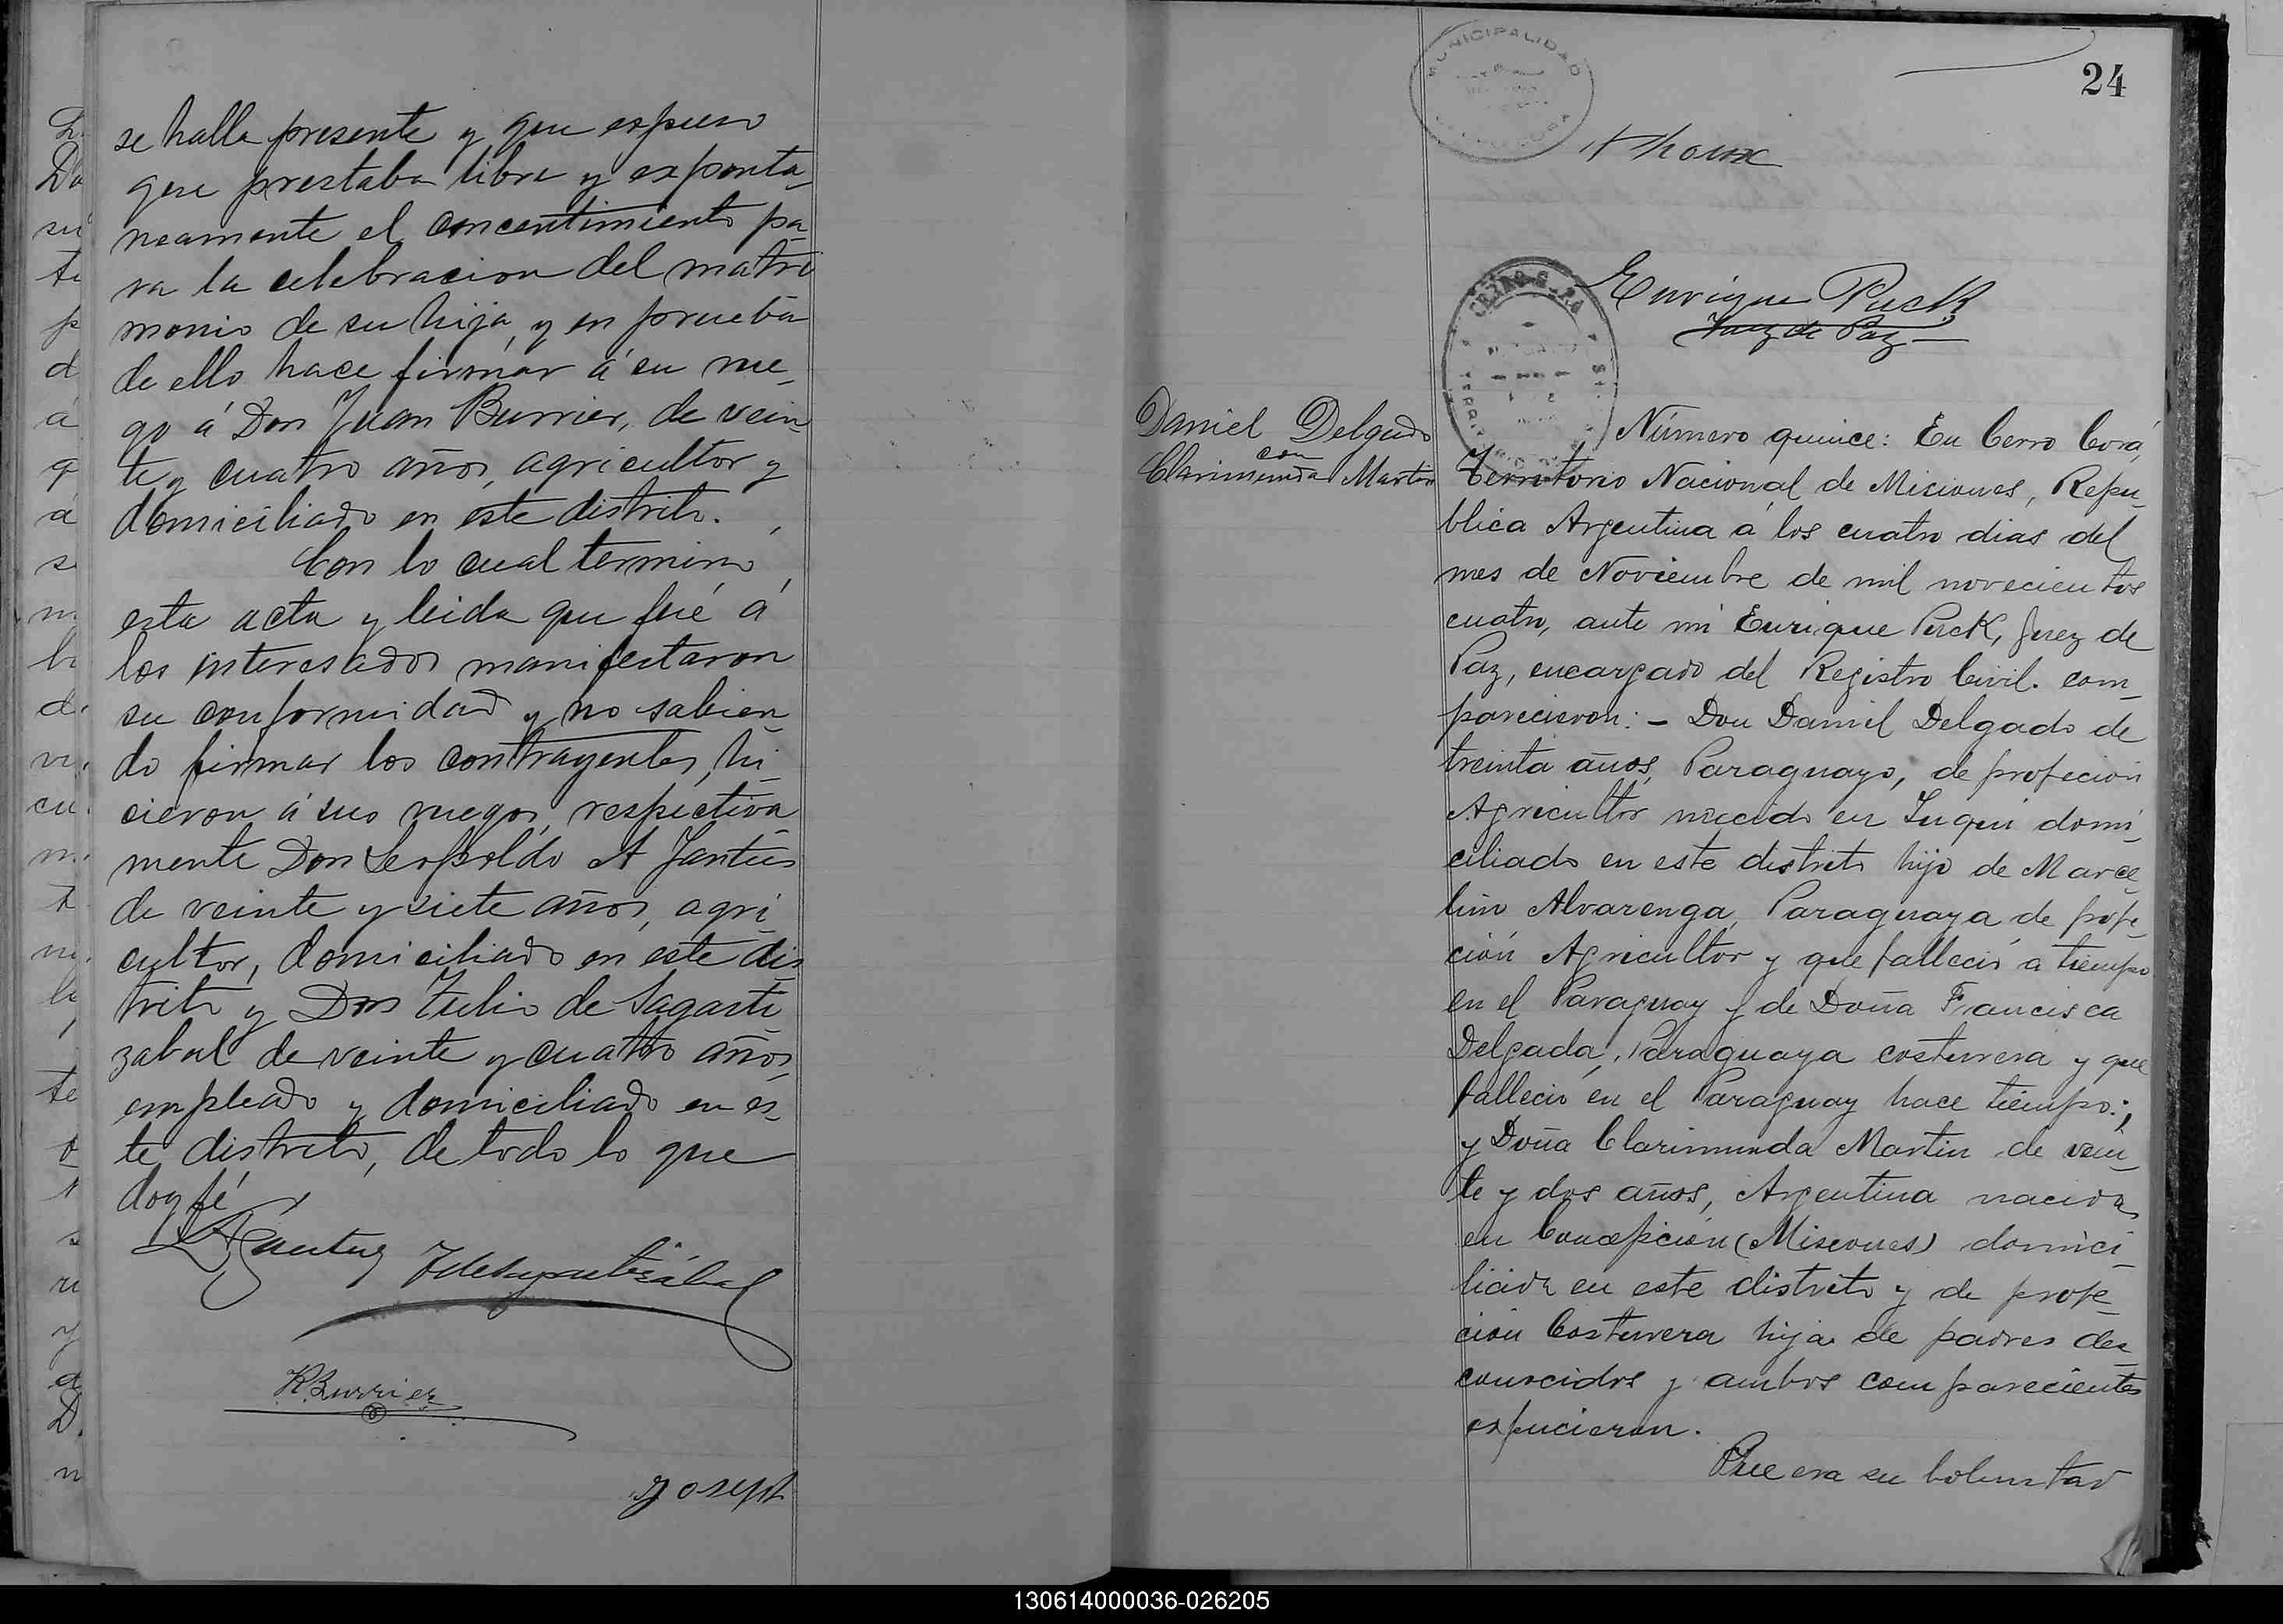 se halla presente y que espuso
que prestaba libre y esponta-
neamente el concentimiento pa-
ra la celebracion del matri
monio de su hija, y en prueba
de ello hace firmar á su rue-
go á Don Juan Burrier, de vein-
te y cuatro años, agricultor y
domiciliado en este distrito.
Con lo cual terminó
esta acta y leida que fué á
los interesados manifestaron
su conformidad y no sabien-
do firmar los contrayentes, hi-
cieron á sus ruegos respectiva
mente Don Leopoldo A
de veinte y siete años, agri-
cultor, domiciliado en este dis
trito y Don Julio de Sagasti
zabal de veinte y cuatro años
empleado y domiciliado en es-
te distrito, de todo lo que
doy fé
J de Sagastizábal
Burrier
Joseph
MUNICIPALIDAD
24
Thoux
Enrique Puck
Juez de Paz
Daniel Delgado
con
Clarimunda Martin
Número quince: En Cerro Corá,
Territorio Nacional de Miciones, Repu-
blica Argentina á los cuatro dias del
mes de Noviembre de mil novecientos
cuatro, ante mi Enrique Puck, Juez de
Paz, encargado del Registro Civil. com-
parecieron: - Don Daniel Delgado de
treinta años, Paraguayo, de profecion
Agricultor nacido en Luqui domi-
ciliado en este distrito hijo de Marce-
lino Alvarenga, Paraguaya de profe-
ción Agricultor y que falleció a tiempo
en el Paraguay y de Doña Francisca
Delgada, Paraguaya costurera y que
falleció en el Paraguay hace tiempo:,
y Doña Clarimunda Martin de vein-
te y dos años, Argentina nacida
en Concepción (Misiones) domici-
liada en este distrito y de profe-
ción Costurera hija de padres des-
conocidos y ambos comparecientes
espucieron.
Que era su boluntad
130614000036-026205